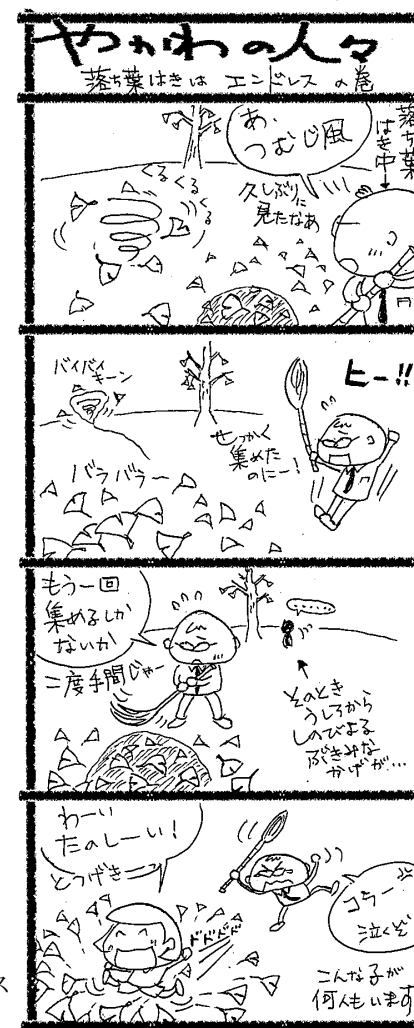 やがわの人々
落ち葉はきは エンドレス の巻
落ち葉
はき中
あ、
つむじ風
久しぶりに
見たなあ
くるくるくるくる
ヒー!!
バイバイ
キーン
せっかく
集めた
のにー!
バラバラー
もう一回
集めるしか
ないか
二度手間じゃー
……
そのとき
うしろから
しのびよる
ぶきみな
かげが…
わーい
たのしーい!
とつげきー
ドドドドド
コラー
泣くぞ
こんな子が
何人もいます
ス